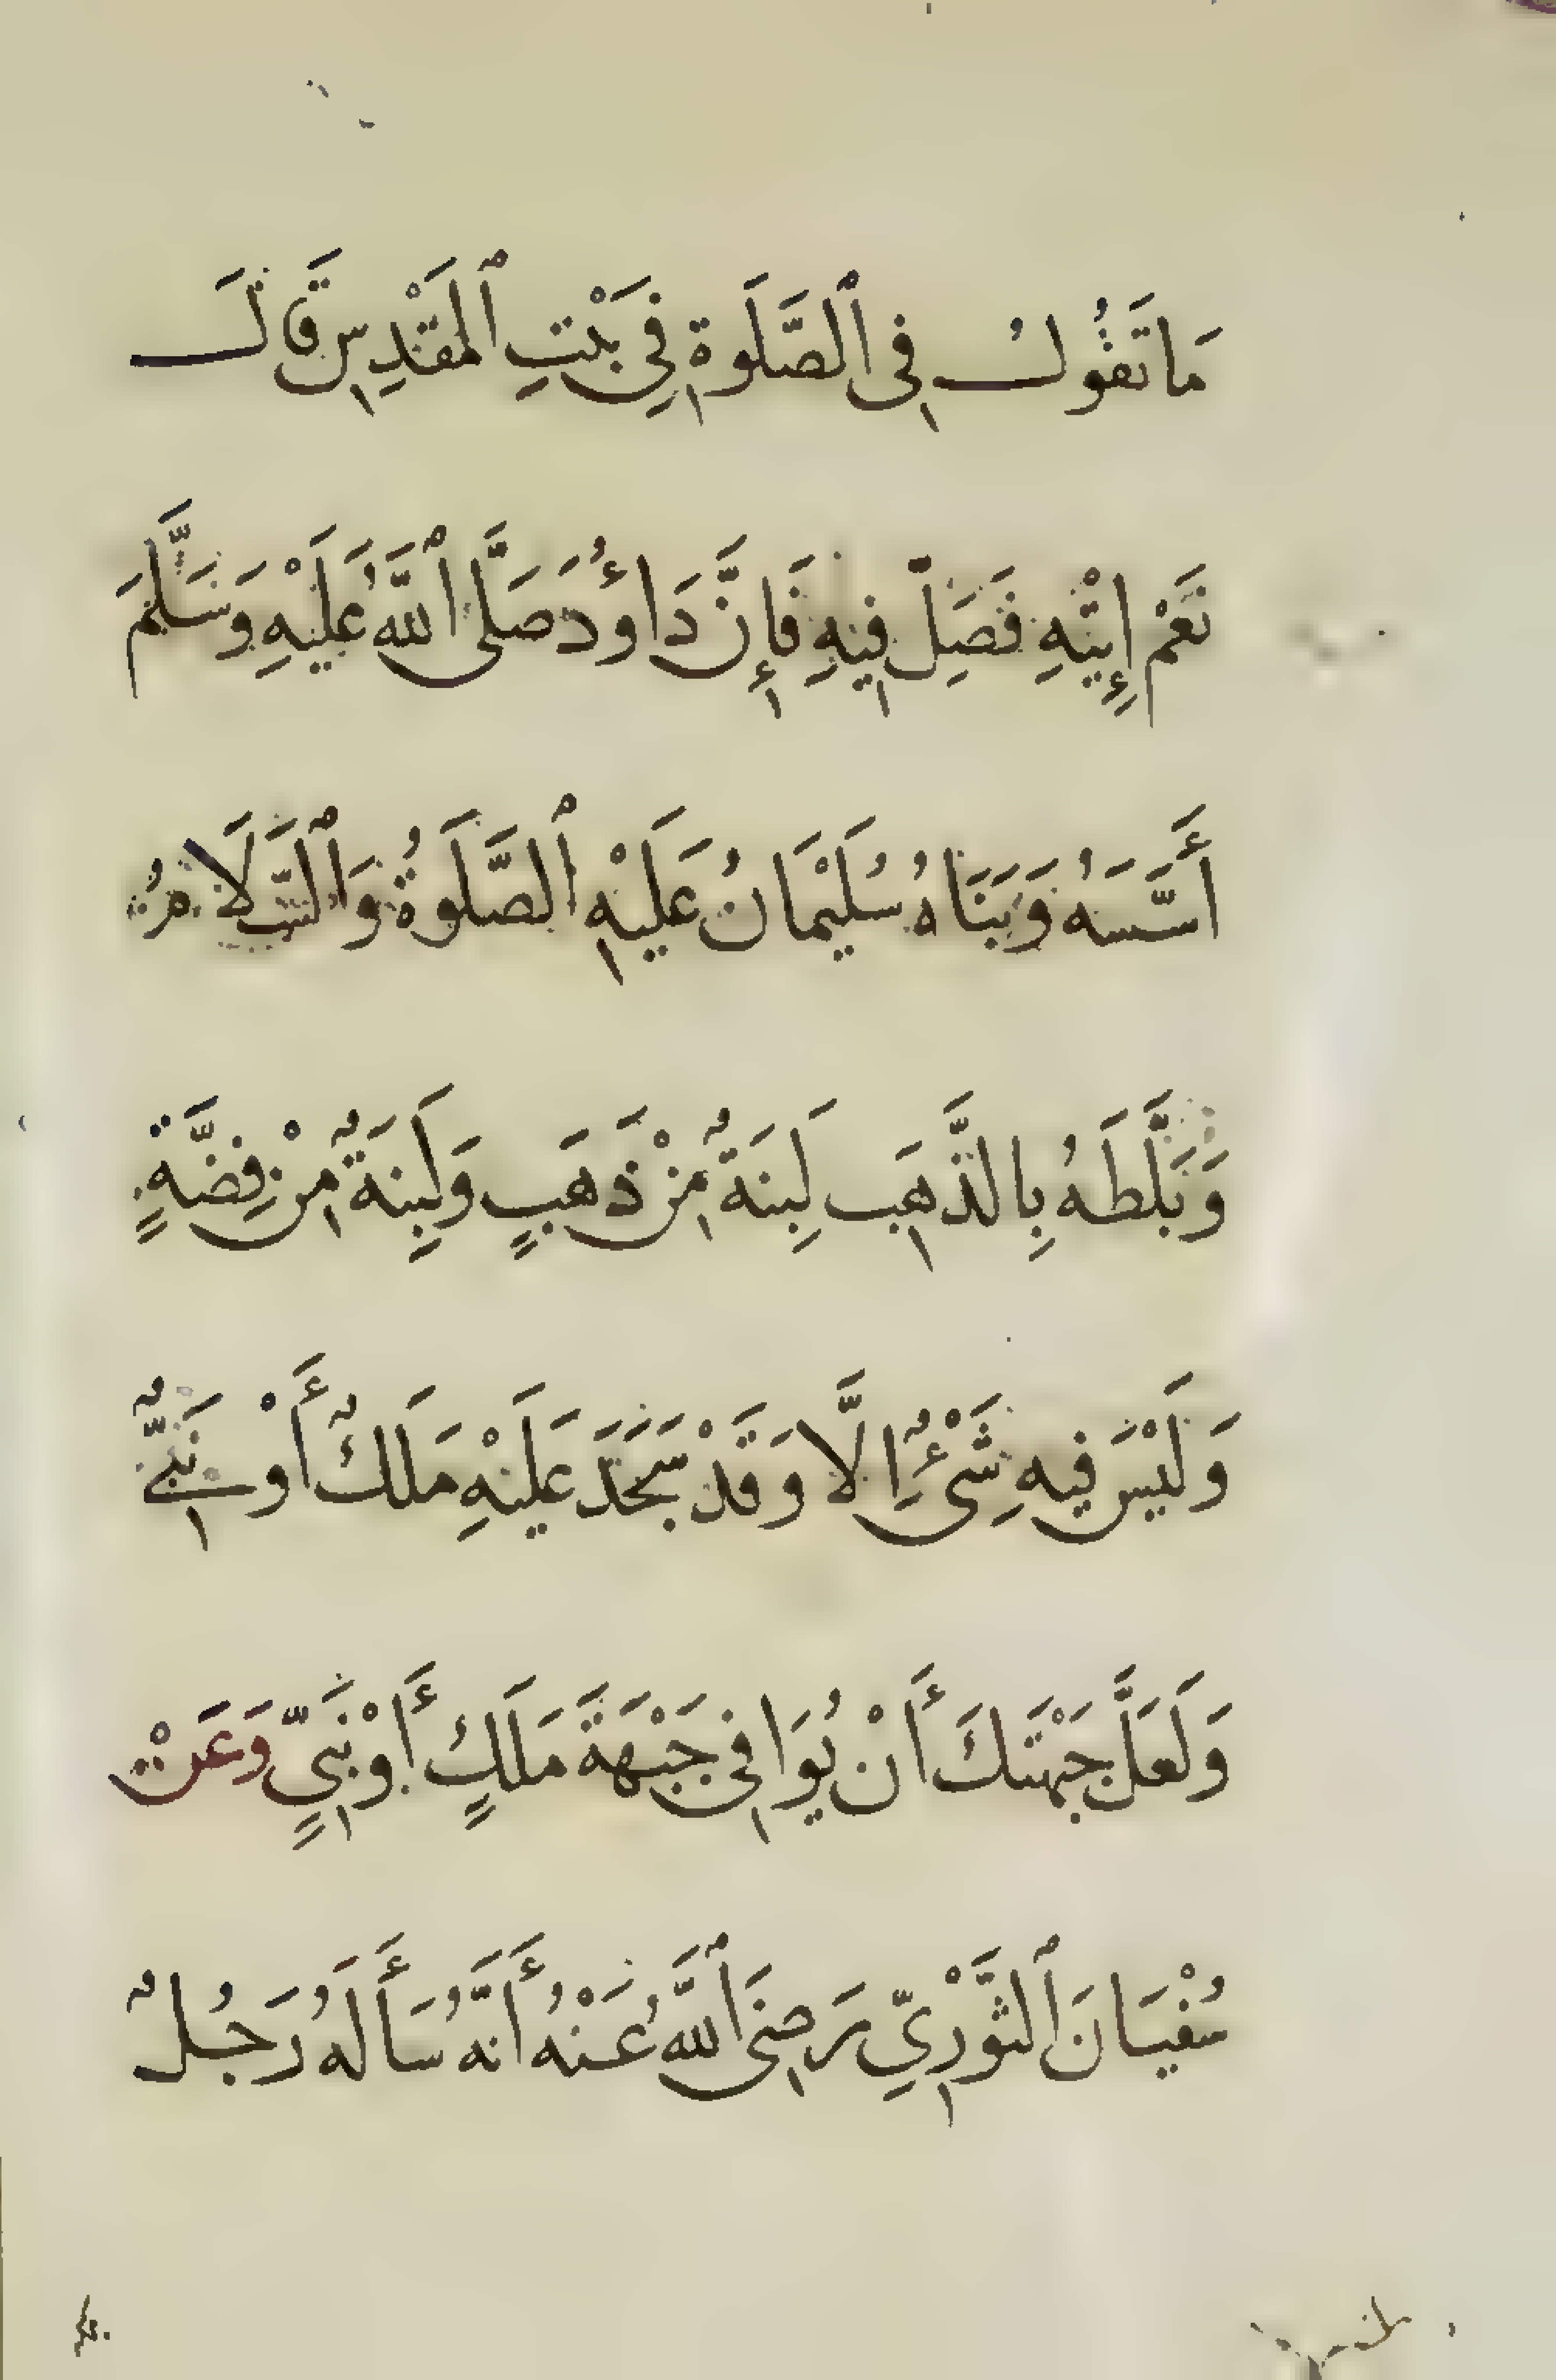 مَا تَقُولُ فِي ٱلصَّلَوةِ فِي بَيْتِ ٱلْمَقْدِسِ قَالَ
نَعَمْ إِيْتِهِ فَصَلِّ فِيهِ فَإِنَّ دَاؤُدَ صَلَّى ٱللَّهُ عَلَيْهِ وَسَلَّمَ
أَسَّسَهُ وَبَنَاهُ سُلَيْمَانُ عَلَيْهِ ٱلصَّلَوةُ وَٱلسَّلَامُ
وَبَلَّطَهُ بِالذَّهَبِ لَبِنَةٌ مِنْ ذَهَبٍ وَلَبِنَةٌ مِنْ فِضَّةٍ
وَلَيْسَ فِيهِ شَيْءٌ إِلَّا وَقَدْ سَجَدَ عَلَيْهِ مَلَكٌ أَوْ نَبِيٌّ
وَلَعَلَّ جَبْهَتَكَ أَنْ يُوَافِيَ جَبْهَةَ مَلَكٍ أَوْ نَبِيٍّ وَعَنْ
سُفْيَانَ ٱلثَّوْرِيِّ رَضِيَ ٱللَّهُ عَنْهُ أَنَّهُ سَأَلَهُ رَجُلٌ